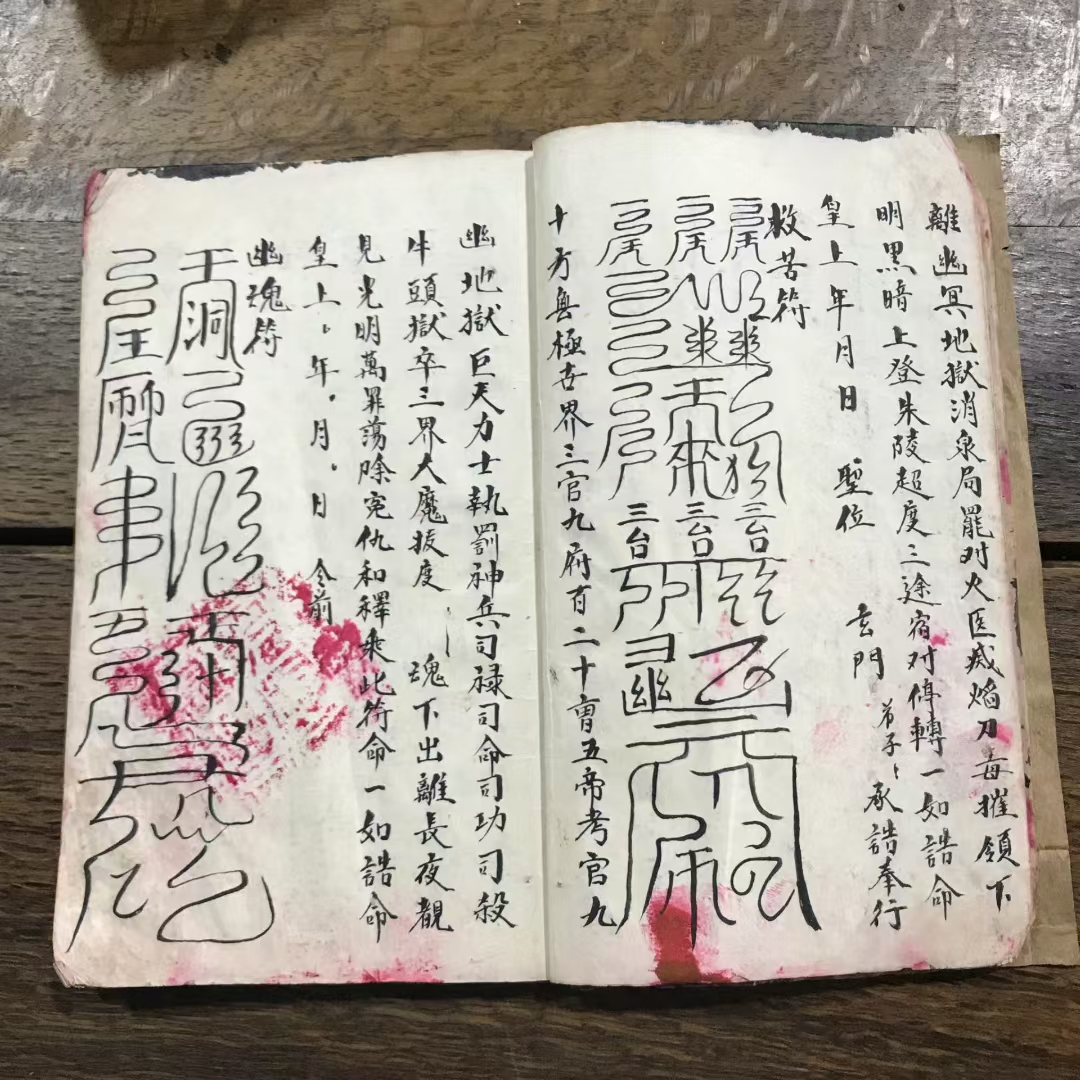 離幽冥地獄消泉局罷対火医威焰刀毒摧領下
明黑暗上登朱陵超度三途宿対停轉一如誥命
皇上年月日 聖位 玄門 弟子、承誥奉行
救苦符
三台 三台 三台
十方無極世界三官九府百二十曺五帝考官九
幽地獄巨天力士執罰神兵司禄司命司功司殺
牛頭獄卒三界大魔拔度 魂下出離長夜覩
見光明萬罪蕩除寃仇和釋乘此符命一如誥命
皇上、年、月、日 令前
幽魂符